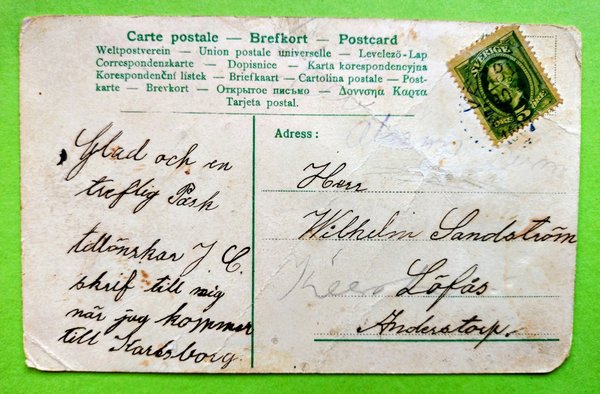 Carte postale — Brefkort — Postcard
Weltpostverein — Union postale universelle — Levelező-Lap
Correspondenzkarte — Dopisnice — Karta korespondencyjna
Korespondenční lístek — Briefkaart — Cartolina postale — Post-
karte — Brevkort — Открытое письмо — Δοννσηα Καρτα
Tarjeta postal.
SVERIGE
5
Adress:
Glad och en
treflig Påsk
tillönskar J. C.
skrif till mig
når jag kommer
till Karlsborg
Herr
Wilhelm Sandström
Löfås
Anderstorp.